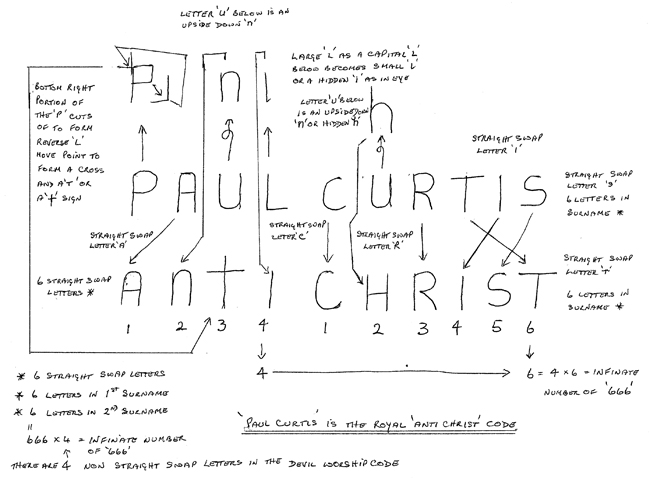 LETTER 'U' BELOW IS AN
UPSIDE DOWN 'N'
P
n
l
LARGE 'L' AS A CAPITAL 'L'
BELOW BECOMES SMALL 'L'
OR A HIDDEN 'I' AS IN EYE
LETTER 'U' BELOW
IS AN UPSIDE DOWN
'N' OR HIDDEN
n
BOTTOM RIGHT
PORTION OF
THE 'P' CUTS
OF TO FORM
REVERSE 'L'
MOVE POINT TO
FORM A CROSS
AND A 'T' OR
A 't' SIGN
STRAIGHT SWAP
LETTER 'I'
PAUL CURTIS
STRAIGHT SWAP
LETTER 'S'
6 LETTERS IN
SURNAME *
STRAIGHT SWAP
LETTER 'A'
STRAIGHT SWAP
LETTER 'C'
STRAIGHT SWAP
LETTER 'R'
STRAIGHT SWAP
LETTER 'T'
6 LETTERS IN
SURNAME *
6 STRAIGHT SWAP
LETTERS *
AnTI CHRIST
1 2 3 4 1 2 3 4 5 6
4 6 = 4 x 6 = INFINATE
NUMBER OF '666'
* 6 STRAIGHT SWAP LETTERS
* 6 LETTERS IN 1ST SURNAME
* 6 LETTERS IN 2ND SURNAME
=
666 x 4 = INFINATE NUMBER
OF '666'
THERE ARE 4 NON STRAIGHT SWAP LETTERS IN THE DEVIL WORSHIP CODE
'PAUL CURTIS' IS THE ROYAL 'ANTI CHRIST' CODE